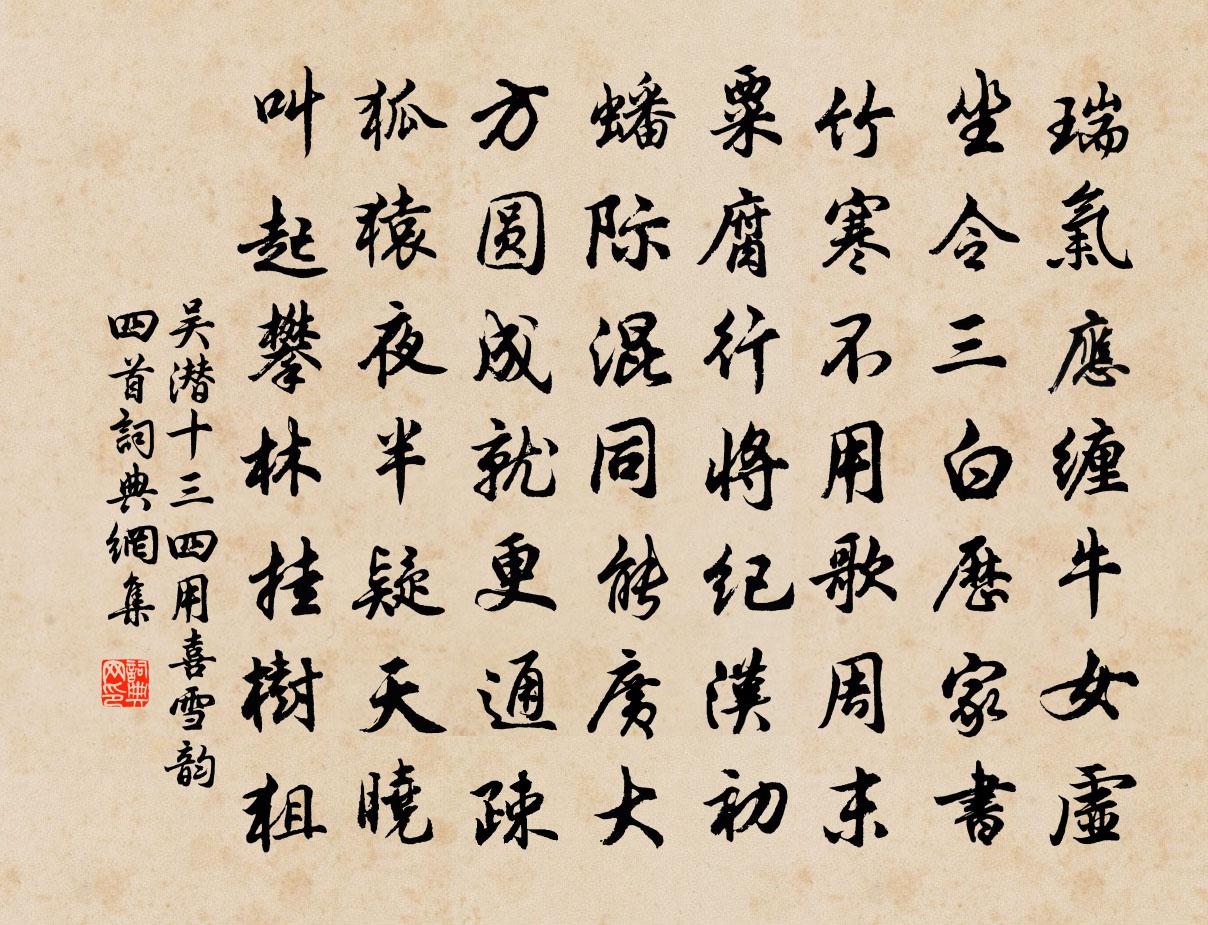 瑞氣應缠牛女虛
坐令三白歷家書
竹寒不用歌周末
粟腐行将纪漢初
蟠际混同能廣大
方圆成就更通疎
狐猿夜半疑天曉
叫起攀林挂樹狙
吴潜十三四用喜雪韵
四首詞典網集
詞典网印